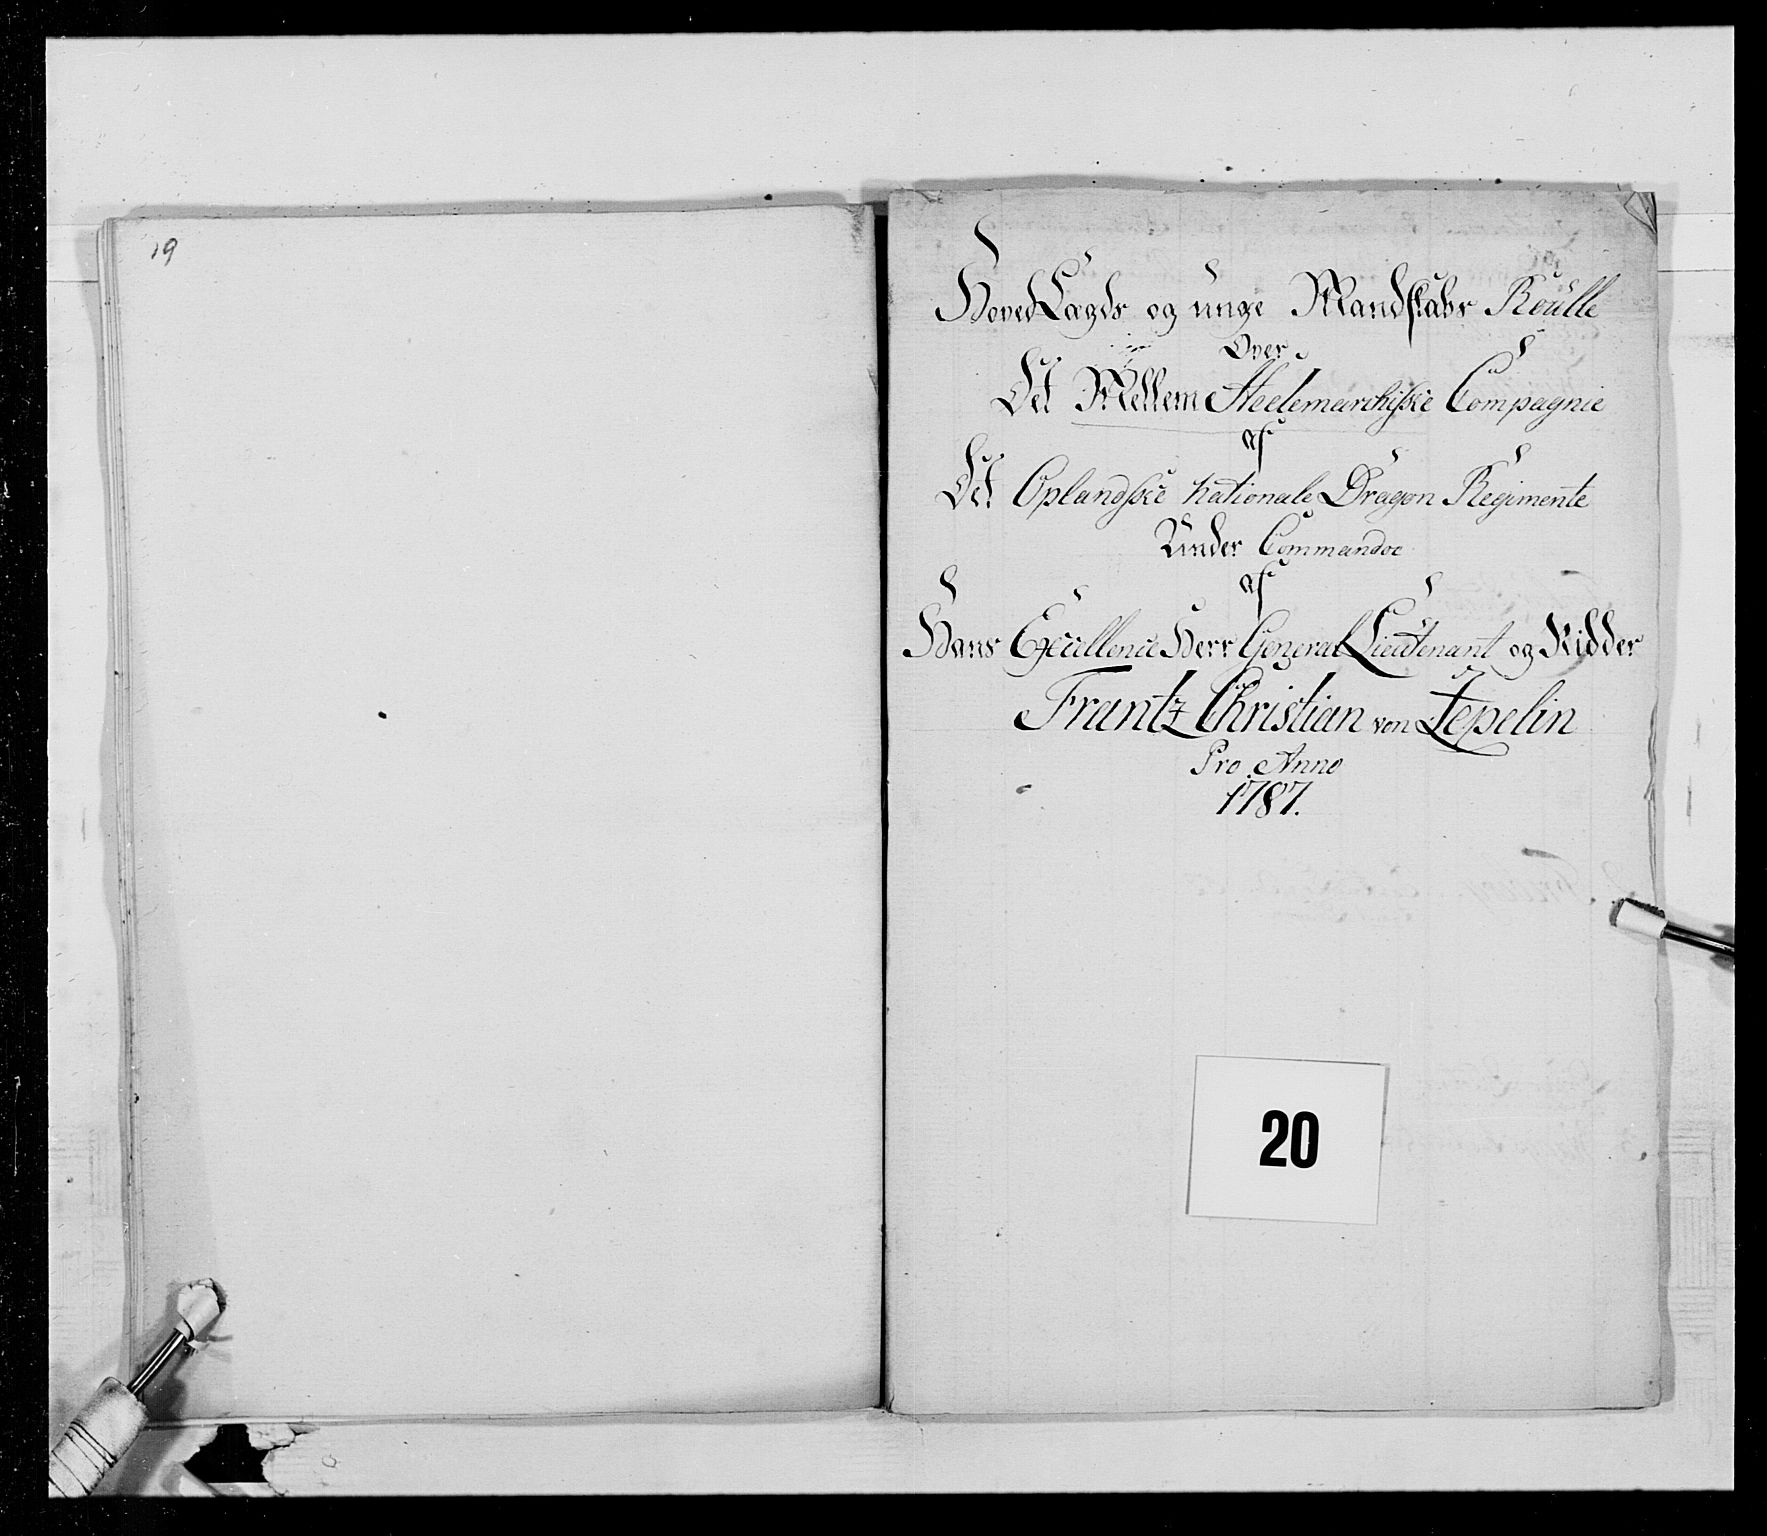 19
Hoved Lægds og unge Mandskabs Roulle
Over
Det Mellem Heelemarchiske Compagnie
af
Det Oplandske nationale Dragon Regimente
Under Commandoe
af
Hans Excellence Herr General Lieutenant og Ridder
Frantz Christian von Zepelin
Pro Anno
1787.
20